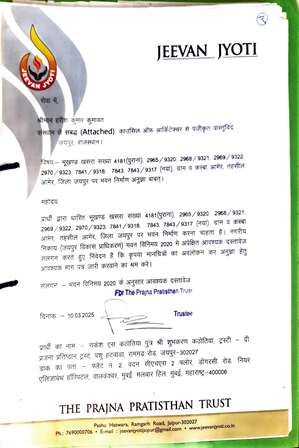 JEEVAN JYOTI
JEEVAN JYOTI
सेवा में,
श्रीमान हरीश कुमार कुमावत
संस्थान से संबद्ध (Attached) काउंसिल ऑफ आर्किटेक्चर से पंजीकृत वास्तुविद
जयपुर, राजस्थान।
विषय:- भूखण्ड खसरा संख्या 4181(पुराना), 2965 / 9320, 2968 / 9321, 2969 / 9322,
2970 / 9323, 7841 / 9318, 7843, 7843 / 9317 (नया), ग्राम व कस्बा आमेर, तहसील
आमेर, जिला जयपुर पर भवन निर्माण अनुज्ञा बाबत्।
महोदय,
प्रार्थी द्वारा धारित भूखण्ड खसरा संख्या 4181(पुराना), 2965 / 9320, 2968 / 9321,
2969 / 9322, 2970 / 9323, 7841 / 9318, 7843, 7843 / 9317 (नया), ग्राम व कस्बा
आमेर, तहसील आमेर, जिला जयपुर पर भवन निर्माण करना चाहता है। नगरीय
निकाय (जयपुर विकास प्राधिकरण) भवन विनियम 2020 में अपेक्षित आवश्यक दस्तावेज
संलग्न करते हुए निवेदन है कि कृपया मानचित्रों का अवलोकन कर अनुज्ञा हेतु
आवश्यक मांग पत्र जारी करवाने का श्रम करें।
संलग्न - भवन विनियम 2020 के अनुसार आवश्यक दस्तावेज
For The Prajna Pratisthan Trust
दिनांक - 10.03.2025
Trustee
प्रार्थी का नाम - राकेश एस कठोतिया पुत्र श्री शुभकरण कठोतिया, ट्रस्टी - दी
प्रजना प्रतिष्ठान ट्रस्ट, पशु हटवाडा, रामगढ़ रोड, जयपुर-302027
डाक का पता - फ्लैट नं 2, वदन सीएचएस 2 फ्लोर, डोंगरसी रोड, नियर
एलिजाबेथ हॉस्पिटल, वालकेश्वर, मुंबई, मलबार हिल, मुंबई, महाराष्ट्र-400006
THE PRAJNA PRATISTHAN TRUST
Pashu Hatwara, Ramgarh Road, Jaipur-302027
Ph.: 7690000706 • Email : jeevanjyotijaipur@gmail.com • www.jeevanjyoti.co.in